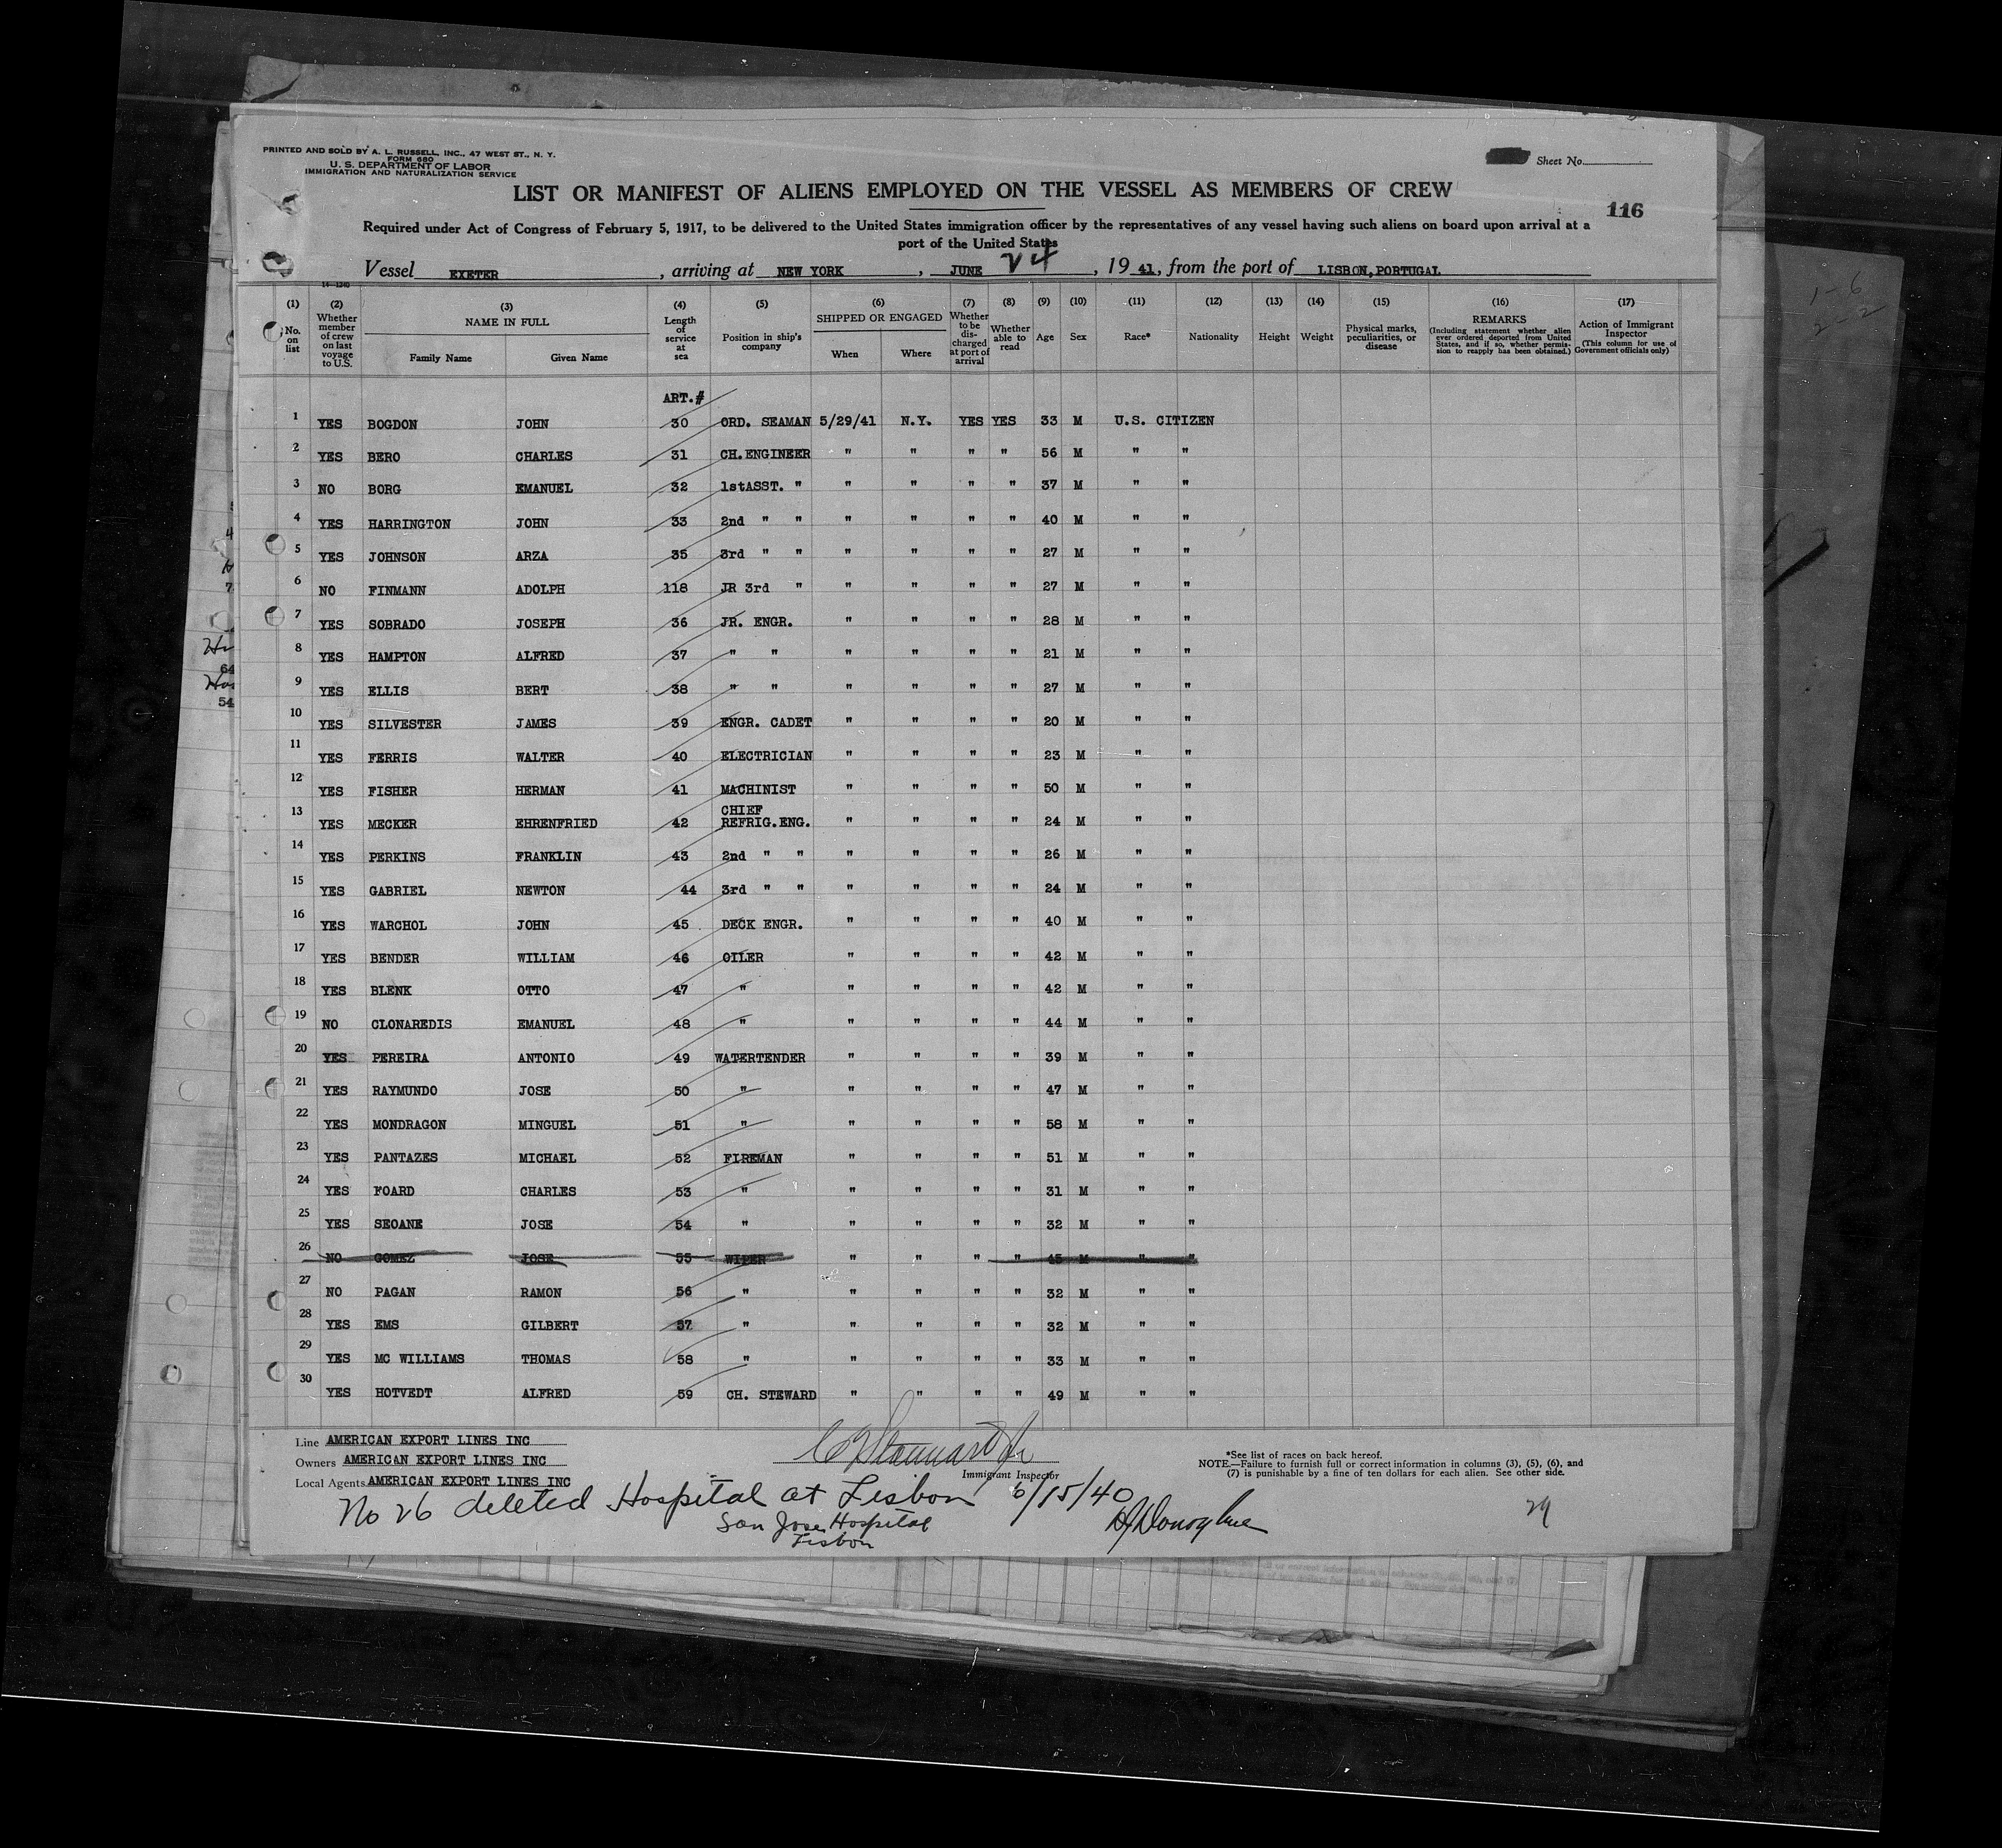 PRINTED AND SOLD BY A. L. RUSSELL, INC., 47 WEST ST., N. Y.
FORM 680
U. S. DEPARTMENT OF LABOR
IMMIGRATION AND NATURALIZATION SERVICE
Sheet No.
LIST OR MANIFEST OF ALIENS EMPLOYED ON THE VESSEL AS MEMBERS OF CREW
116
Required under Act of Congress of February 5, 1917, to be delivered to the United States immigration officer by the representatives of any vessel having such aliens on board upon arrival at a
port of the United States
Vessel EXETER, arriving at NEW YORK, JUNE 24, 1941, from the port of LISBON, PORTUGAL
14—1240
(1) No. on list (2) Whether member of crew on last voyage to U.S. (3) NAME IN FULL Family Name Given Name (4) Length of service at sea (5) Position in ship's company (6) SHIPPED OR ENGAGED When Where (7) Whether to be discharged at port of arrival (8) Whether able to read (9) Age (10) Sex (11) Race* (12) Nationality (13) Height (14) Weight (15) Physical marks, peculiarities, or disease (16) REMARKS (Including statement whether alien ever ordered deported from United States, and if so, whether permission to reapply has been obtained.) (17) Action of Immigrant Inspector (This column for use of Government officials only)
ART.#
1 YES BOGDON JOHN 30 ORD. SEAMAN 5/29/41 N.Y. YES YES 33 M U.S. CITIZEN
2 YES BERO CHARLES 31 CH.ENGINEER " " " " 56 M " "
3 NO BORG EMANUEL 32 1stASST. " " " " " 37 M " "
4 YES HARRINGTON JOHN 33 2nd " " " " " " 40 M " "
5 YES JOHNSON ARZA 35 3rd " " " " " " 27 M " "
6 NO FINMANN ADOLPH 118 JR 3rd " " " " " 27 M " "
7 YES SOBRADO JOSEPH 36 JR. ENGR. " " " " 28 M " "
8 YES HAMPTON ALFRED 37 " " " " " " 21 M " "
9 YES ELLIS BERT 38 " " " " " " 27 M " "
10 YES SILVESTER JAMES 39 ENGR. CADET " " " " 20 M " "
11 YES FERRIS WALTER 40 ELECTRICIAN " " " " 23 M " "
12 YES FISHER HERMAN 41 MACHINIST " " " " 50 M " "
13 YES MECKER EHRENFRIED 42 CHIEF REFRIG.ENG. " " " " 24 M " "
14 YES PERKINS FRANKLIN 43 2nd " " " " " " 26 M " "
15 YES GABRIEL NEWTON 44 3rd " " " " " " 24 M " "
16 YES WARCHOL JOHN 45 DECK ENGR. " " " " 40 M " "
17 YES BENDER WILLIAM 46 OILER " " " " 42 M " "
18 YES BLENK OTTO 47 " " " " " 42 M " "
19 NO CLONAREDIS EMANUEL 48 " " " " " 44 M " "
20 YES PEREIRA ANTONIO 49 WATERTENDER " " " " 39 M " "
21 YES RAYMUNDO JOSE 50 " " " " " 47 M " "
22 YES MONDRAGON MINGUEL 51 " " " " " 58 M " "
23 YES PANTAZES MICHAEL 52 FIREMAN " " " " 51 M " "
24 YES FOARD CHARLES 53 " " " " " 31 M " "
25 YES SEOANE JOSE 54 " " " " " 32 M " "
26 NO GOMEZ JOSE 55 WIPER " " " " 45 M " "
27 NO PAGAN RAMON 56 " " " " " 32 M " "
28 YES EMS GILBERT 57 " " " " " 32 M " "
29 YES MC WILLIAMS THOMAS 58 " " " " " 33 M " "
30 YES HOTVEDT ALFRED 59 CH. STEWARD " " " " 49 M " "
Line AMERICAN EXPORT LINES INC
Owners AMERICAN EXPORT LINES INC
Local Agents AMERICAN EXPORT LINES INC
Immigrant Inspector
*See list of races on back hereof.
NOTE.—Failure to furnish full or correct information in columns (3), (5), (6), and
(7) is punishable by a fine of ten dollars for each alien. See other side.
No 26 deleted Hospital at Lisbon 6/15/40
San Jose Hospital
Lisbon
29